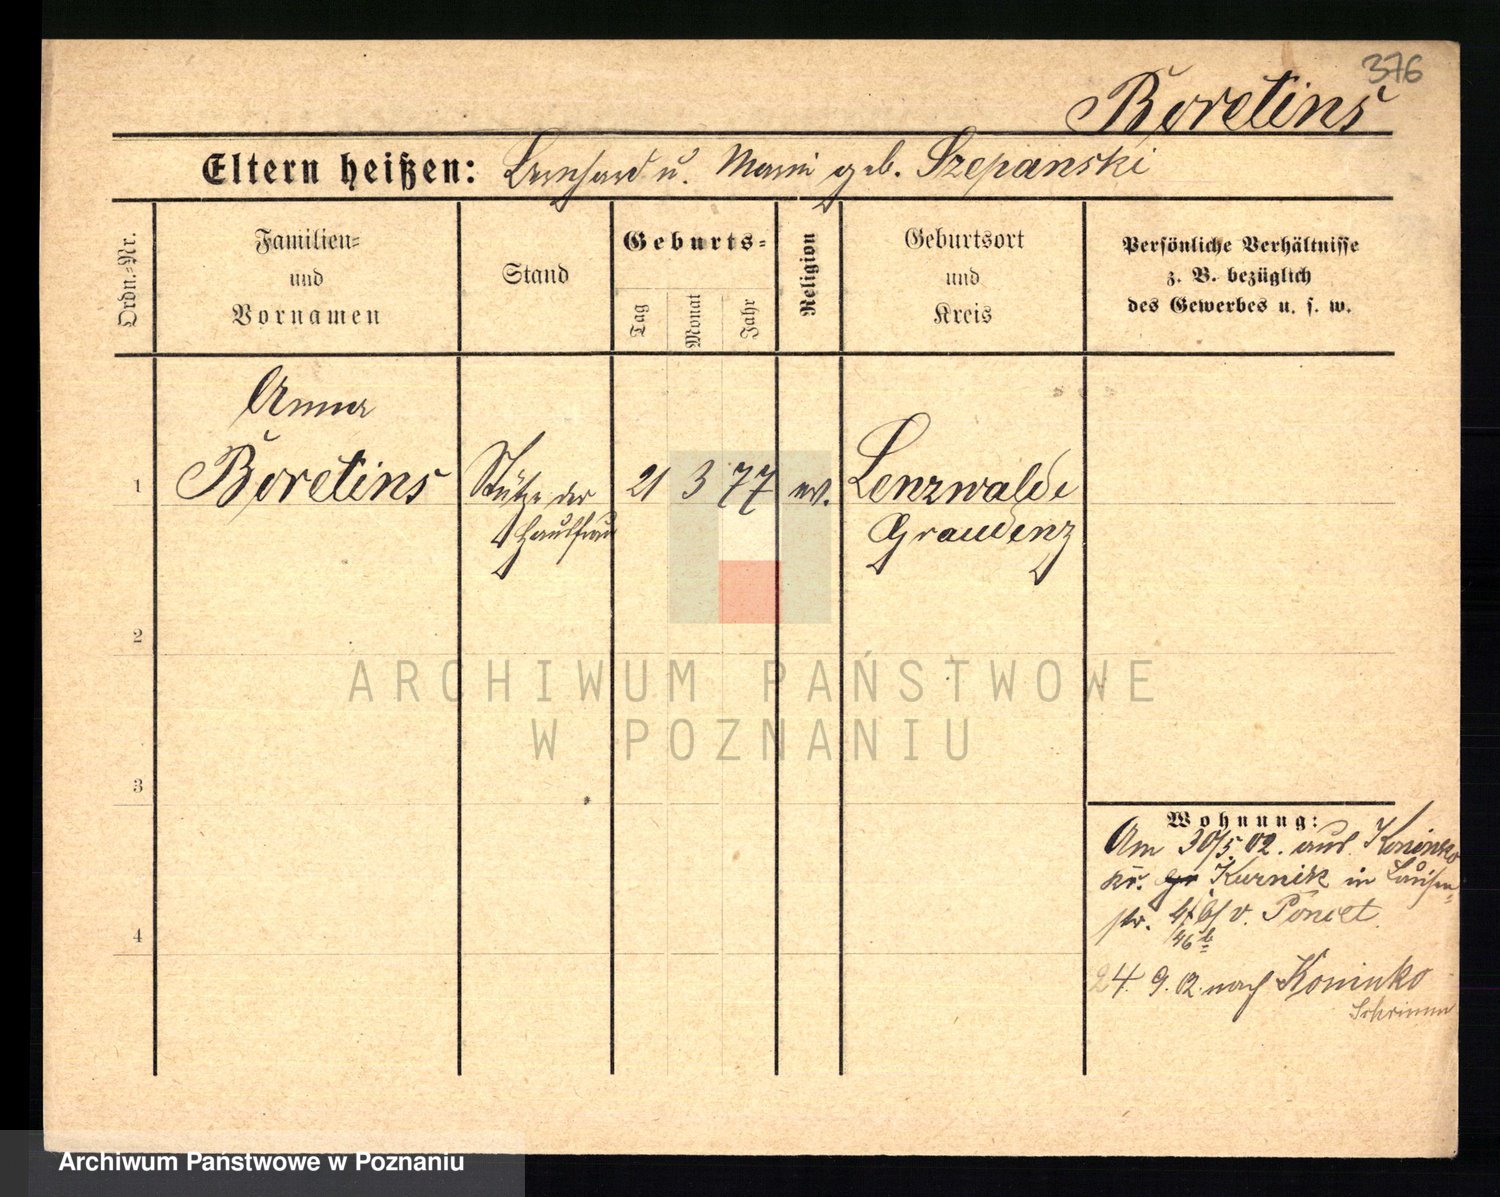 376
Boretius
Eltern heißen: Bernhard u. Marie geb. Szepanski
Ordn.-Nr.
Familien-
und
Vornamen
Stand
Geburts-
Tag
Monat
Jahr
Religion
Geburtsort
und
Kreis
Persönliche Verhältnisse
z. B. bezüglich
des Gewerbes u. s. w.
Anna
1 Boretius Stütze der 21 3 77 ev. Lenzwalde
Hausfrau Graudenz
2
3
4
Wohnung:
Am 30/5. 02. aus Koninko
Kr. Kurnik in Louisen-
str. b/ v. Poncet
16 b
24. 9. 02. nach Koninko
Schrimm
ARCHIWUM PAŃSTWOWE
W POZNANIU
Archiwum Państwowe w Poznaniu